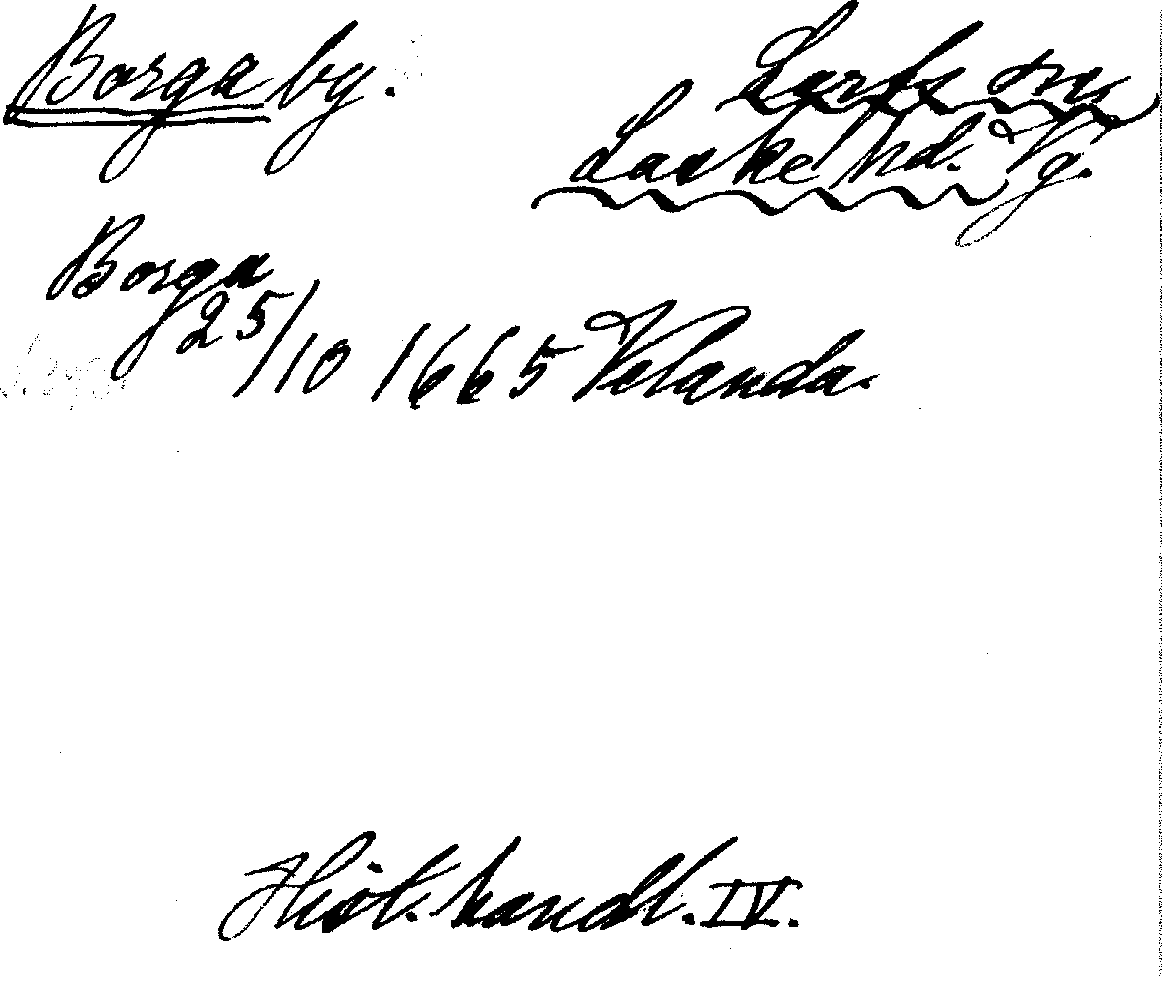 Borga by.
Larfs sn
Laske hd. Vg.
Borga
25/10 1665 Velanda.
Hist. handl. IV.